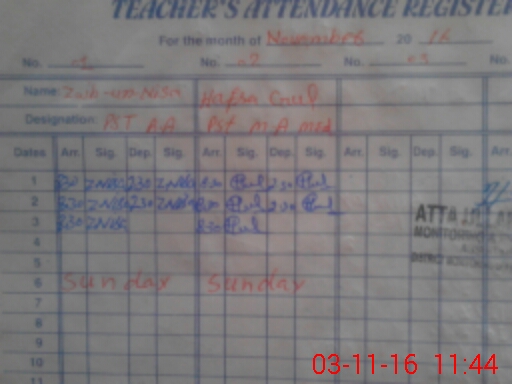 TEACHER'S ATTENDANCE REGISTER
For the month of November 2016
No. No. 02 No. 03 No.
Name: Zaib-un-Nisa Hafsa Gul
Designation: PST A-A PST M A med
Dates Arr. Sig. Dep. Sig. Arr. Sig. Dep. Sig. Arr. Sig. Dep. Sig. Arr
1 8:30 2:30 8:30 2:30
2 8:30 2:30 8:30 2:30
3 8:30 8:30
4
5
6 Sunday Sunday
7
8
9
10
11
ATTA
MONITORING
DISTRICT
03-11-16 11:44